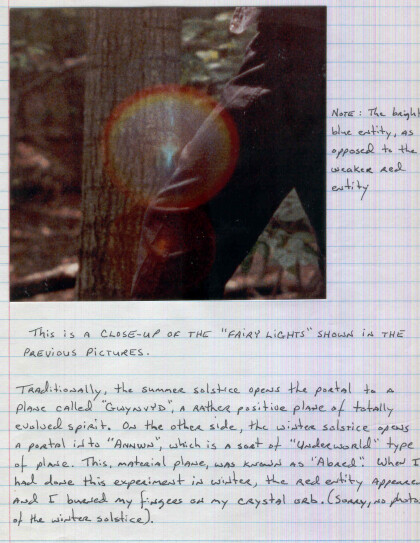 NOTE: The bright
blue entity, as
opposed to the
weaker red
entity
THIS IS A CLOSE-UP OF THE "FAIRY LIGHTS" SHOWN IN THE
PREVIOUS PICTURES.
TRADITIONALLY, the summer solstice opens the portal to a
plane called "GWYNVYD", a rather positive plane of totally
evolved spirit. ON the other side, the winter solstice opens
a portal into "ANNWN", which is a sort of "Underworld" type
of plane. This, material plane, was known as "Abred". When I
had done this experiment in winter, the red entity appeared
AND I burned my fingers on my crystal orb. (Sorry, no photos
of the winter solstice).